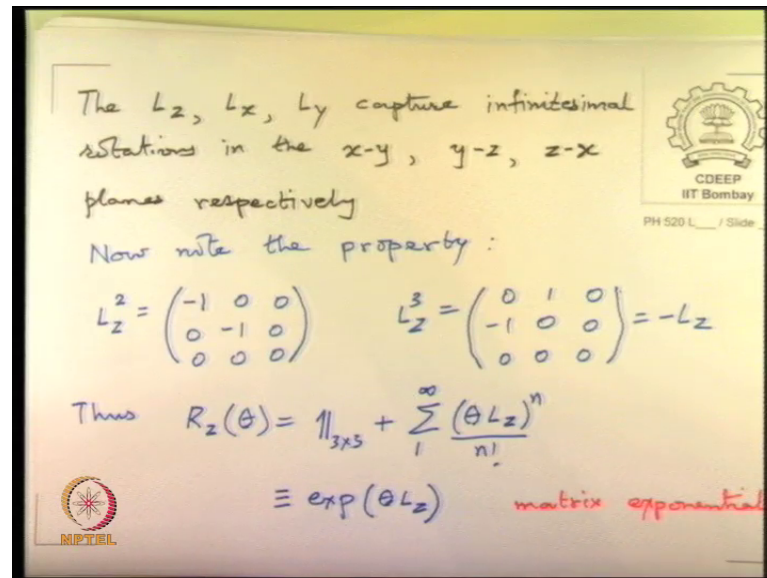 The Lz, Lx, Ly capture infinitesimal
rotations in the x-y, y-z, z-x
planes respectively
CDEEP
IIT Bombay
PH 520 L___ / Slide
Now note the property :
Lz² = (-1 0 0; 0 -1 0; 0 0 0)   Lz³ = (0 1 0; -1 0 0; 0 0 0) = -Lz
Thus Rz(θ) = 𝟙₃ₓ₃ + Σ₁^∞ (θLz)ⁿ / n!
≡ exp(θLz)   matrix exponential
NPTEL